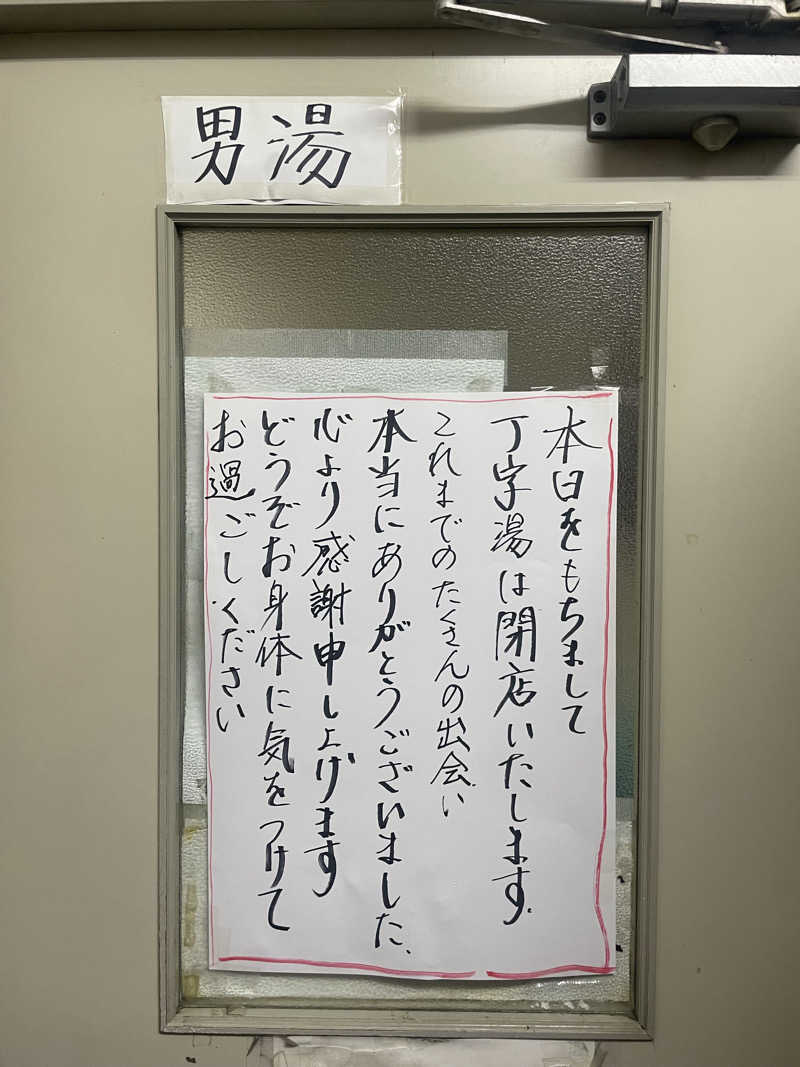 男湯
本日をもちまして
丁字湯は閉店いたします.
これまでのたくさんの出会い
本当にありがとうございました、
心より感謝申し上げます
どうぞお身体に気をつけて
お過ごしください